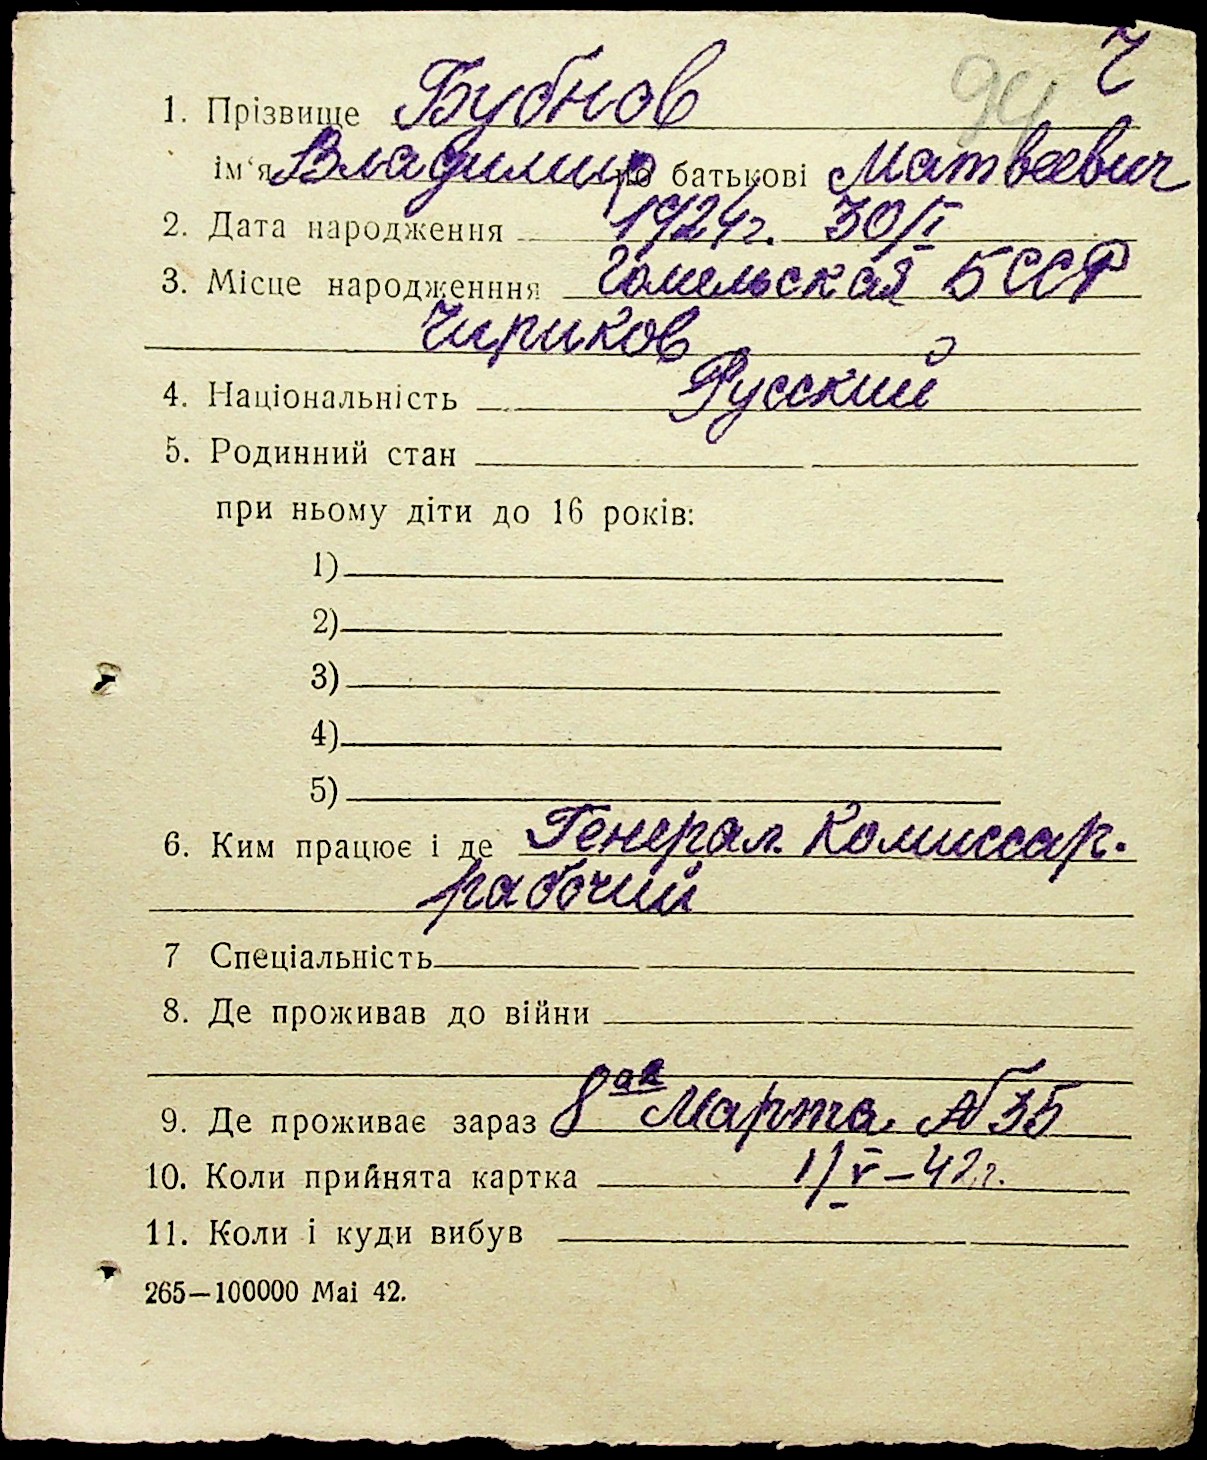 Ч
94
1. Прізвище Бубнов
ім'я Владимир по батькові Матвеевич
2. Дата народження 1924г. 30/I
3. Місце народженння Гомельская БССР
Чириков
4. Національність Русский
5. Родинний стан
при ньому діти до 16 років:
1)
2)
3)
4)
5)
6. Ким працює і де Генерал. Комиссар.
рабочий
7 Спеціальність
8. Де проживав до війни
9. Де проживає зараз 8ая Марта №35
10. Коли прийнята картка 1/V–42г.
11. Коли і куди вибув
265—100000 Маі 42.